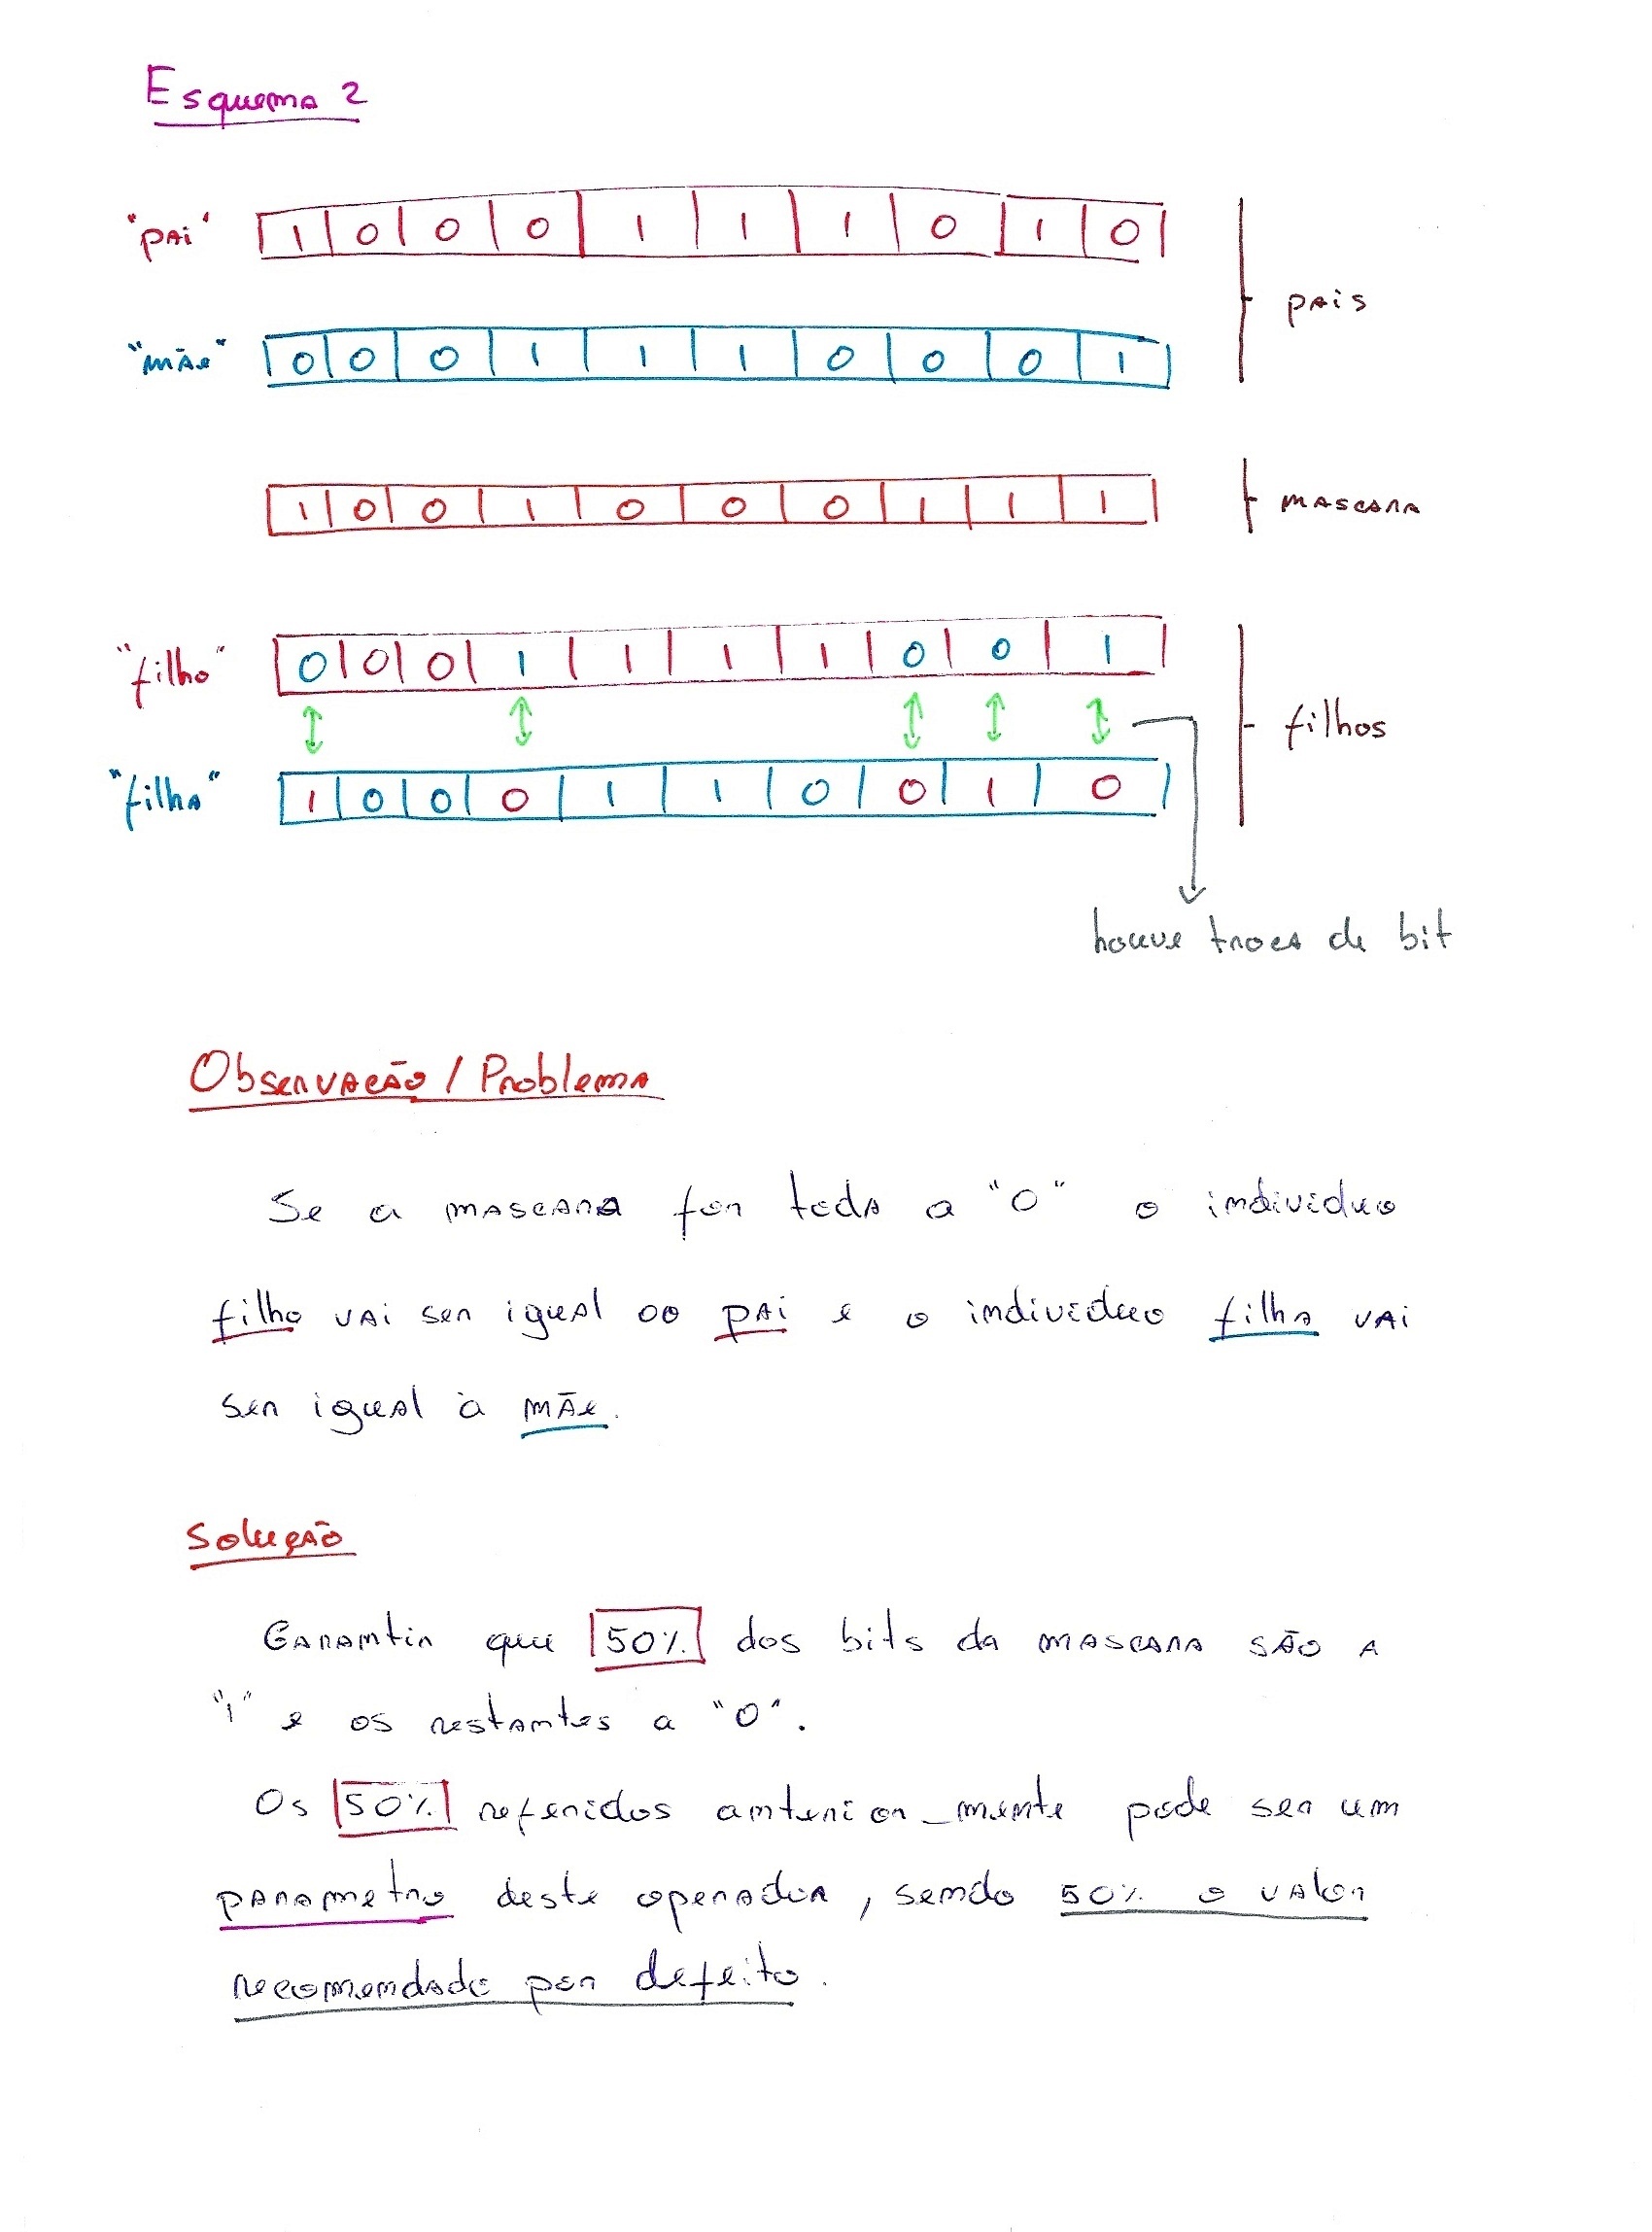 Esquema 2
"pai" 1 0 0 0 1 1 1 0 1 0
pais
"mãe" 0 0 0 1 1 1 0 0 0 1
1 0 0 1 0 0 0 1 1 1 mascara
"filho" 0 0 0 1 1 1 1 0 0 1
filhos
"filha" 1 0 0 0 1 1 0 0 1 0
houve troca de bit
Observação / Problema
Se a mascara for toda a "0" o individuo
filho vai ser igual ao pai e o individuo filha vai
ser igual à mãe.
Solução
Garantir que 50% dos bits da mascara são a
"1" e os restantes a "0".
Os 50% referidos anterior_mente pode ser um
parametro deste operador, sendo 50% o valor
recomendado por defeito.